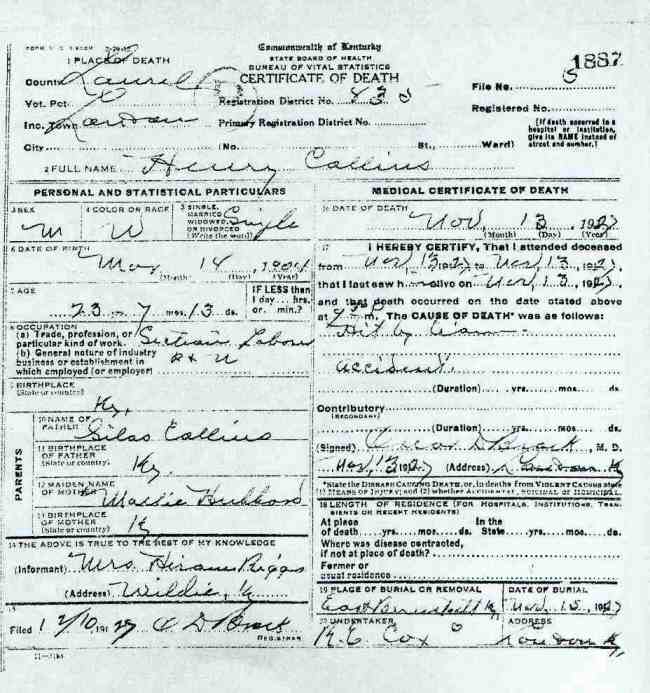 Commonwealth of Kentucky
STATE BOARD OF HEALTH
BUREAU OF VITAL STATISTICS
CERTIFICATE OF DEATH
1 PLACE OF DEATH
County Laurel
Vot. Pct.
Inc. Town London
City (No. St., Ward)
Registration District No.
Primary Registration District No.
File No.
1887
Registered No.
(If death occurred in a
hospital or institution,
give its NAME instead of
street and number.)
2 FULL NAME Henry Collins
PERSONAL AND STATISTICAL PARTICULARS
3 SEX M
4 COLOR OR RACE W
5 SINGLE,
MARRIED
WIDOWED,
OR DIVORCED
(Write the word) Single
6 DATE OF BIRTH
14, 1904
(Month) (Day) (Year)
7 AGE
23 7 mos. 13 ds.
IF LESS than
1 day... hrs.
or. min.?
8 OCCUPATION
(a) Trade, profession, or
particular kind of work. Section Labor
(b) General nature of industry
business or establishment in
which employed (or employer)
9 BIRTHPLACE
(State or country) Ky.
PARENTS
10 NAME OF
FATHER Silas Collins
11 BIRTHPLACE
OF FATHER
(State or country) Ky.
12 MAIDEN NAME
OF MOTHER Hubbard
13 BIRTHPLACE
OF MOTHER
(State or country) Ky
14 THE ABOVE IS TRUE TO THE BEST OF MY KNOWLEDGE
(Informant) Mrs Hiram Riggs
(Address) Wildie, Ky
15
Filed 12/10, 1927
REGISTRAR
MEDICAL CERTIFICATE OF DEATH
16 DATE OF DEATH
Nov, 13, 1927
(Month) (Day) (Year)
17 I HEREBY CERTIFY, That I attended deceased
from Nov 13 1927 to Nov 13, 1927
that I last saw h alive on Nov, 13, 1927
and that death occurred on the date stated above
at m. The CAUSE OF DEATH* was as follows:
Hit by
accident.
(Duration) yrs. mos. ds.
Contributory
(SECONDARY)
(Duration) yrs. mos. ds.
(Signed) Oscar D Brock, M. D.
Nov, 13 1927 (Address) London Ky
*State the DISEASE CAUSING DEATH, or, in deaths from VIOLENT CAUSES state
(1) MEANS OF INJURY; and (2) whether ACCIDENTAL, SUICIDAL or HOMICIDAL.
18 LENGTH OF RESIDENCE (FOR HOSPITALS, INSTITUTIONS, TRANSIENTS OR RECENT RESIDENTS)
At place In the
of death yrs. mos. ds. State yrs. mos. ds.
Where was disease contracted,
if not at place of death?
Former or
usual residence
19 PLACE OF BURIAL OR REMOVAL
East Bernstadt Ky
DATE OF BURIAL
Nov, 15, 1927
20 UNDERTAKER
Cox
ADDRESS
London Ky